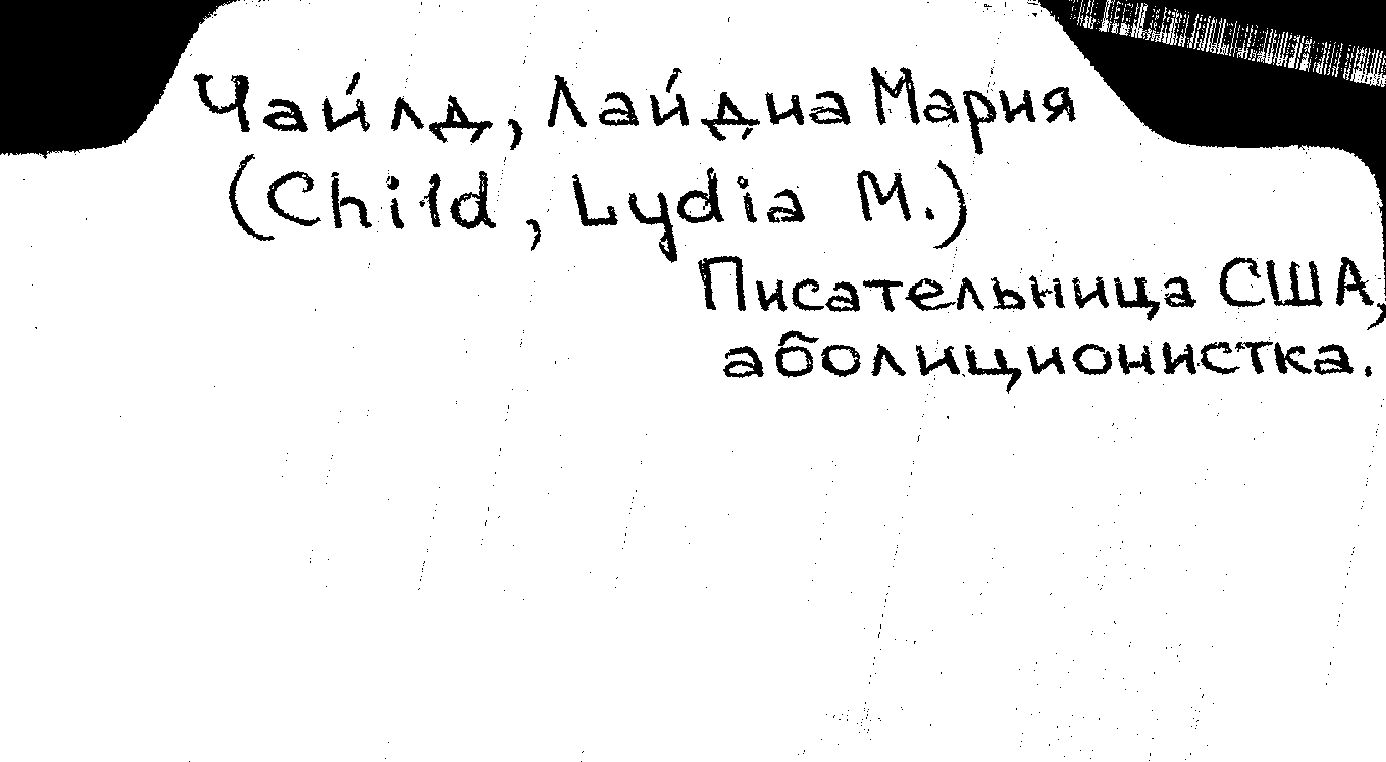 Чайлд, Лайдиа Мария
(Child, Lydia M.)
Писательница США,
аболиционистка.